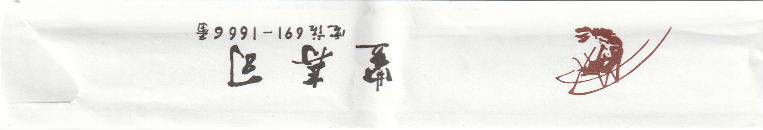 豊寿司
電話691-1666番